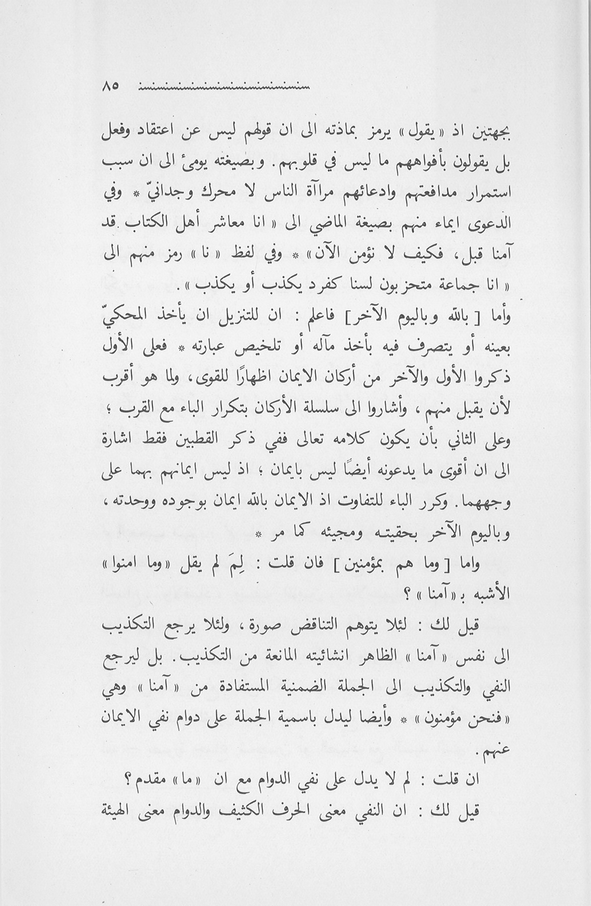 ٨٥
بجهتين اذ «يقول» يرمز بمادته الى ان قولهم ليس عن اعتقاد وفعل
بل يقولون بأفواههم ما ليس في قلوبهم. وبصيغته يومئ الى ان سبب
استمرار مدافعتهم وادعائهم مراآة الناس لا محرك وجدانيّ * وفي
الدعوى ايماء منهم بصيغة الماضي الى «انا معاشر أهل الكتاب قد
آمنا قبل، فكيف لا نؤمن الآن» * وفي لفظ «نا» رمز منهم الى
«انا جماعة متحزبون لسنا كفرد يكذب أو يكذب».
وأما [بالله وباليوم الآخر] فاعلم : ان للتنزيل ان يأخذ المحكيّ
بعينه أو يتصرف فيه بأخذ مآله أو تلخيص عبارته * فعلى الأول
ذكروا الأول والآخر من أركان الايمان اظهارًا للقوى، ولما هو أقرب
لأن يقبل منهم ، وأشاروا الى سلسلة الأركان بتكرار الباء مع القرب ؛
وعلى الثاني بأن يكون كلامه تعالى ففي ذكر القطبين فقط اشارة
الى ان أقوى ما يدعونه أيضًا ليس بايمان ؛ اذ ليس ايمانهم بهما على
وجههما. وكرر الباء للتفاوت اذ الايمان بالله ايمان بوجوده ووحدته ،
وباليوم الآخر بحقيتـه ومجيئه كما مر *
واما [وما هم بمؤمنين] فان قلت : لِمَ لم يقل «وما امنوا»
الأشبه بـ«آمنا» ؟
قيل لك : لئلا يتوهم التناقض صورة ، ولئلا يرجع التكذيب
الى نفس «آمنا» الظاهر انشائيته المانعة من التكذيب. بل ليرجع
النفي والتكذيب الى الجملة الضمنية المستفادة من «آمنا» وهي
«فنحن مؤمنون» * وأيضا ليدل باسمية الجملة على دوام نفي الايمان
عنهم.
ان قلت : لم لا يدل على نفي الدوام مع ان «ما» مقدم ؟
قيل لك : ان النفي معنى الحرف الكثيف والدوام معنى الهيئة